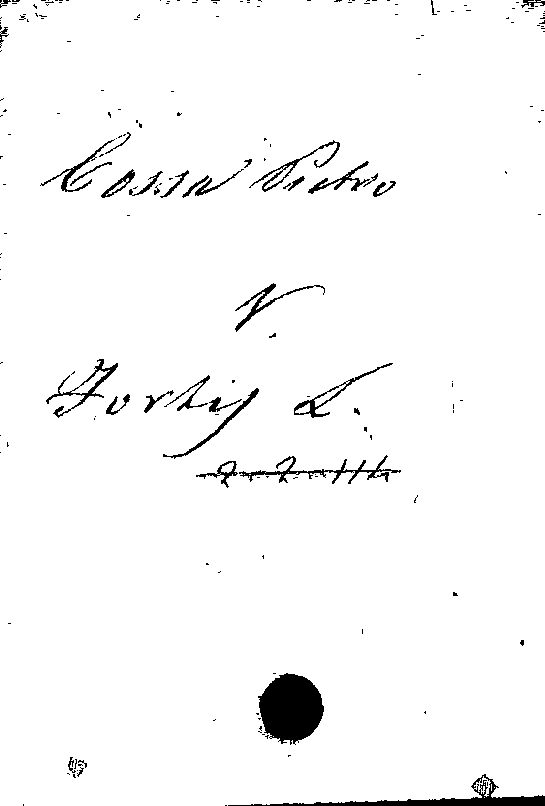 Cossa Pietro
V.
Fortis L.
2.2.114